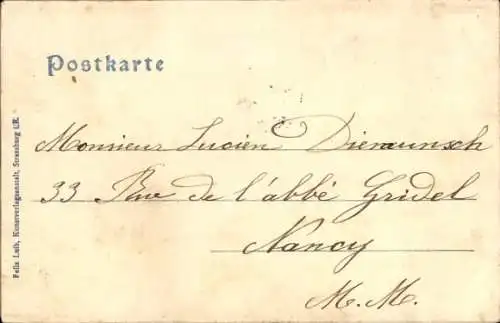 Postkarte
Monsieur Lucien Diemunsch
33 Rue de l'abbé Gridel
Nancy
M. M.
Felix Luib, Kunstverlagsanstalt, Strassburg i/E.